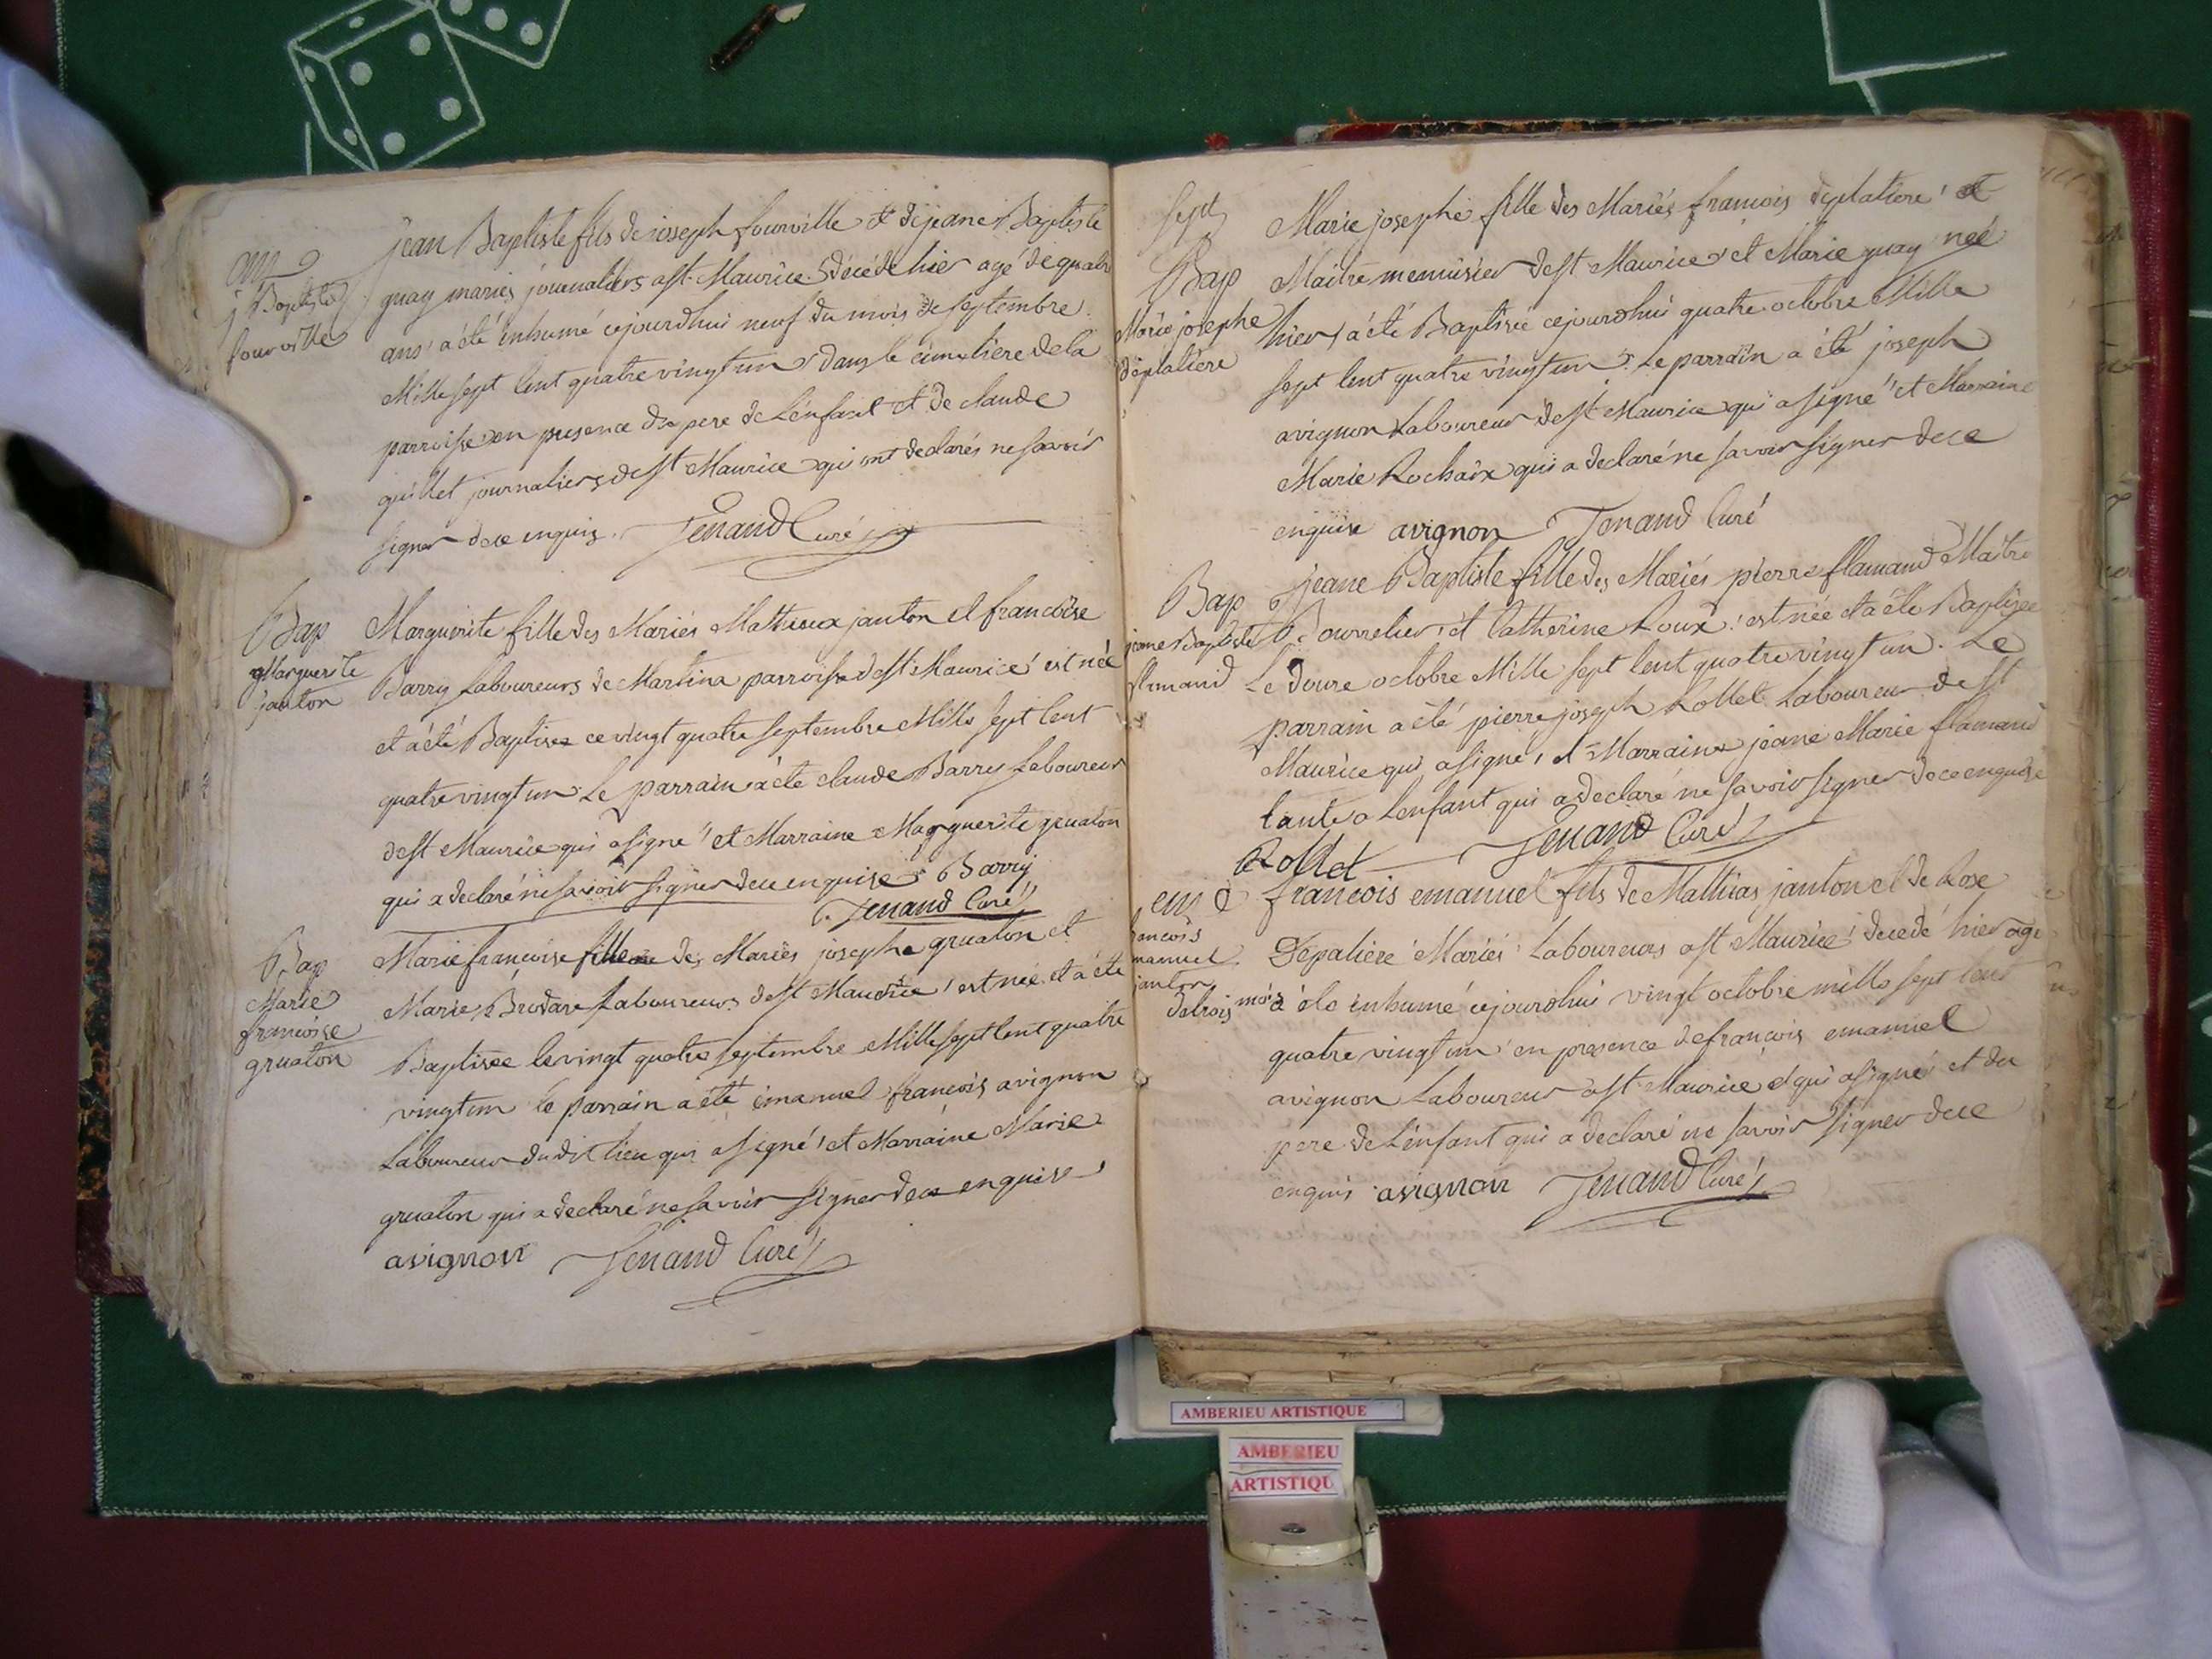 j Baptiste
fourville
jean Baptiste fils de joseph fourville et de jeane Baptiste
guay mariés journaliers a st Maurice décédé hier agé de quatre
ans a été inhumé cejourdhui neuf du mois de septembre
Mille sept Cent quatre vingt un dans le cimetiere de la
parroisse en presence du pere de Lenfant et de claude
quillet journaliers de st Maurice qui ont declarés ne savoir
signer de ce enquis. Jenand Curé
Bap
Marguerite
janton
Marguerite fille des Mariés Mathieu janton et francoise
Barry Laboureurs de Martina parroisse de st Maurice est née
et a été Baptisée ce vingt quatre septembre Mille sept Cent
quatre vingt un Le parrain a été claude Barry Laboureur
de st Maurice qui a signé et Marraine Marguerite gruaton
qui a declaré ne savoir signer de ce enquise Barry
Jenand Curé
Bap
Marie
francoise
gruaton
Marie francoise fille des Mariés josephe gruaton et
Marie Laboureurs de st Maurice est née et a été
Baptisée le vingt quatre septembre Mille sept Cent quatre
vingt un le parrain a été emanuel francois avignon
Laboureur du dit lieu qui a signé et Marraine Marie
gruaton qui a declaré ne savoir signer de ce enquise
avignon Jenand Curé
Sept
Bap
Marie josephe
déplatiere
Marie josephe fille des Mariés francois déplatiere et
Maitre menuisier de st Maurice et Marie guay née
hier a été Baptisée cejourdhui quatre octobre Mille
sept Cent quatre vingt un. Le parrain a été joseph
avignon Laboureur de st Maurice qui a signé et Marraine
Marie Rochaix qui a declaré ne savoir signer de ce
enquise avignon Jenand Curé
Bap
jeane Baptiste
flamand
jeane Baptiste fille des Mariés pierre flamand Maitre
Bourrelier et Catherine Roux est née et a été Baptisée
Le douze octobre Mille sept Cent quatre vingt un. Le
parrain a été pierre joseph Rollet Laboureur de st
Maurice qui a signé, et Marraine jeane Marie flamand
tante a Lenfant qui a declaré ne savoir signer de ce enquise
Rollet Jenand Curé
francois
emanuel
janton
francois emanuel fils de Mathias janton et de Rose
Déplatiere Mariés Laboureurs a st Maurice decedé hier agé
de trois mois a été inhumé cejourdhui vingt octobre mille sept Cent
quatre vingt un en presence de francois emanuel
avignon Laboureur a st Maurice et qui a signé et du
pere de Lenfant qui a declaré ne savoir signer de ce
enquis avignon Jenand Curé
AMBERIEU ARTISTIQUE
AMBERIEU
ARTISTIQU